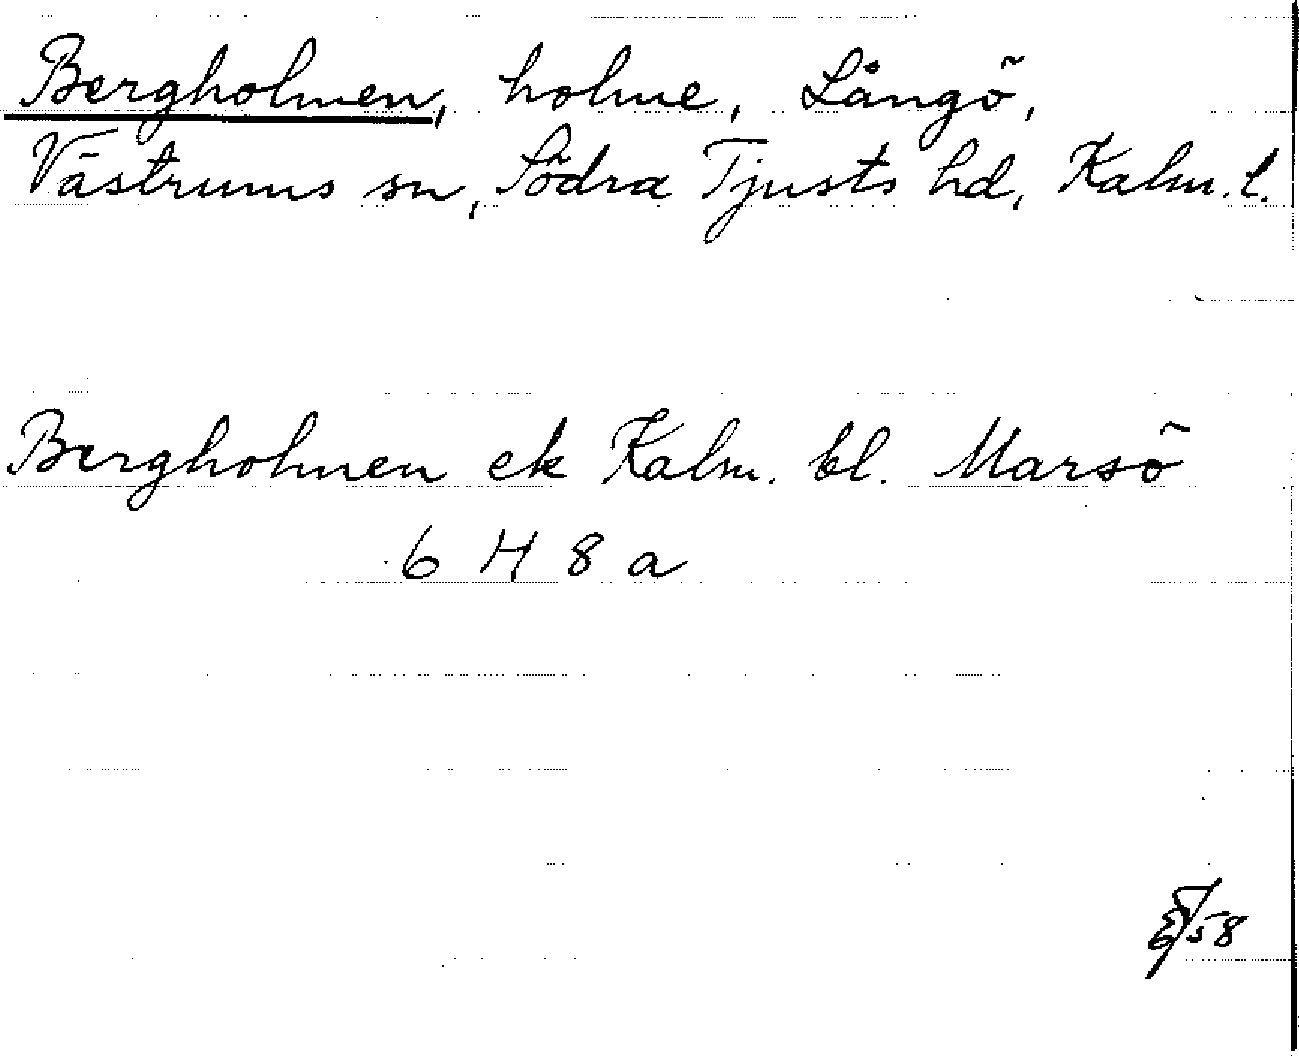 Bergholmen, holme, Långö,
Västrums sn, Södra Tjusts hd, Kalm. l.
Bergholmen ek Kalm. bl. Marsö
6 H 8 a
58